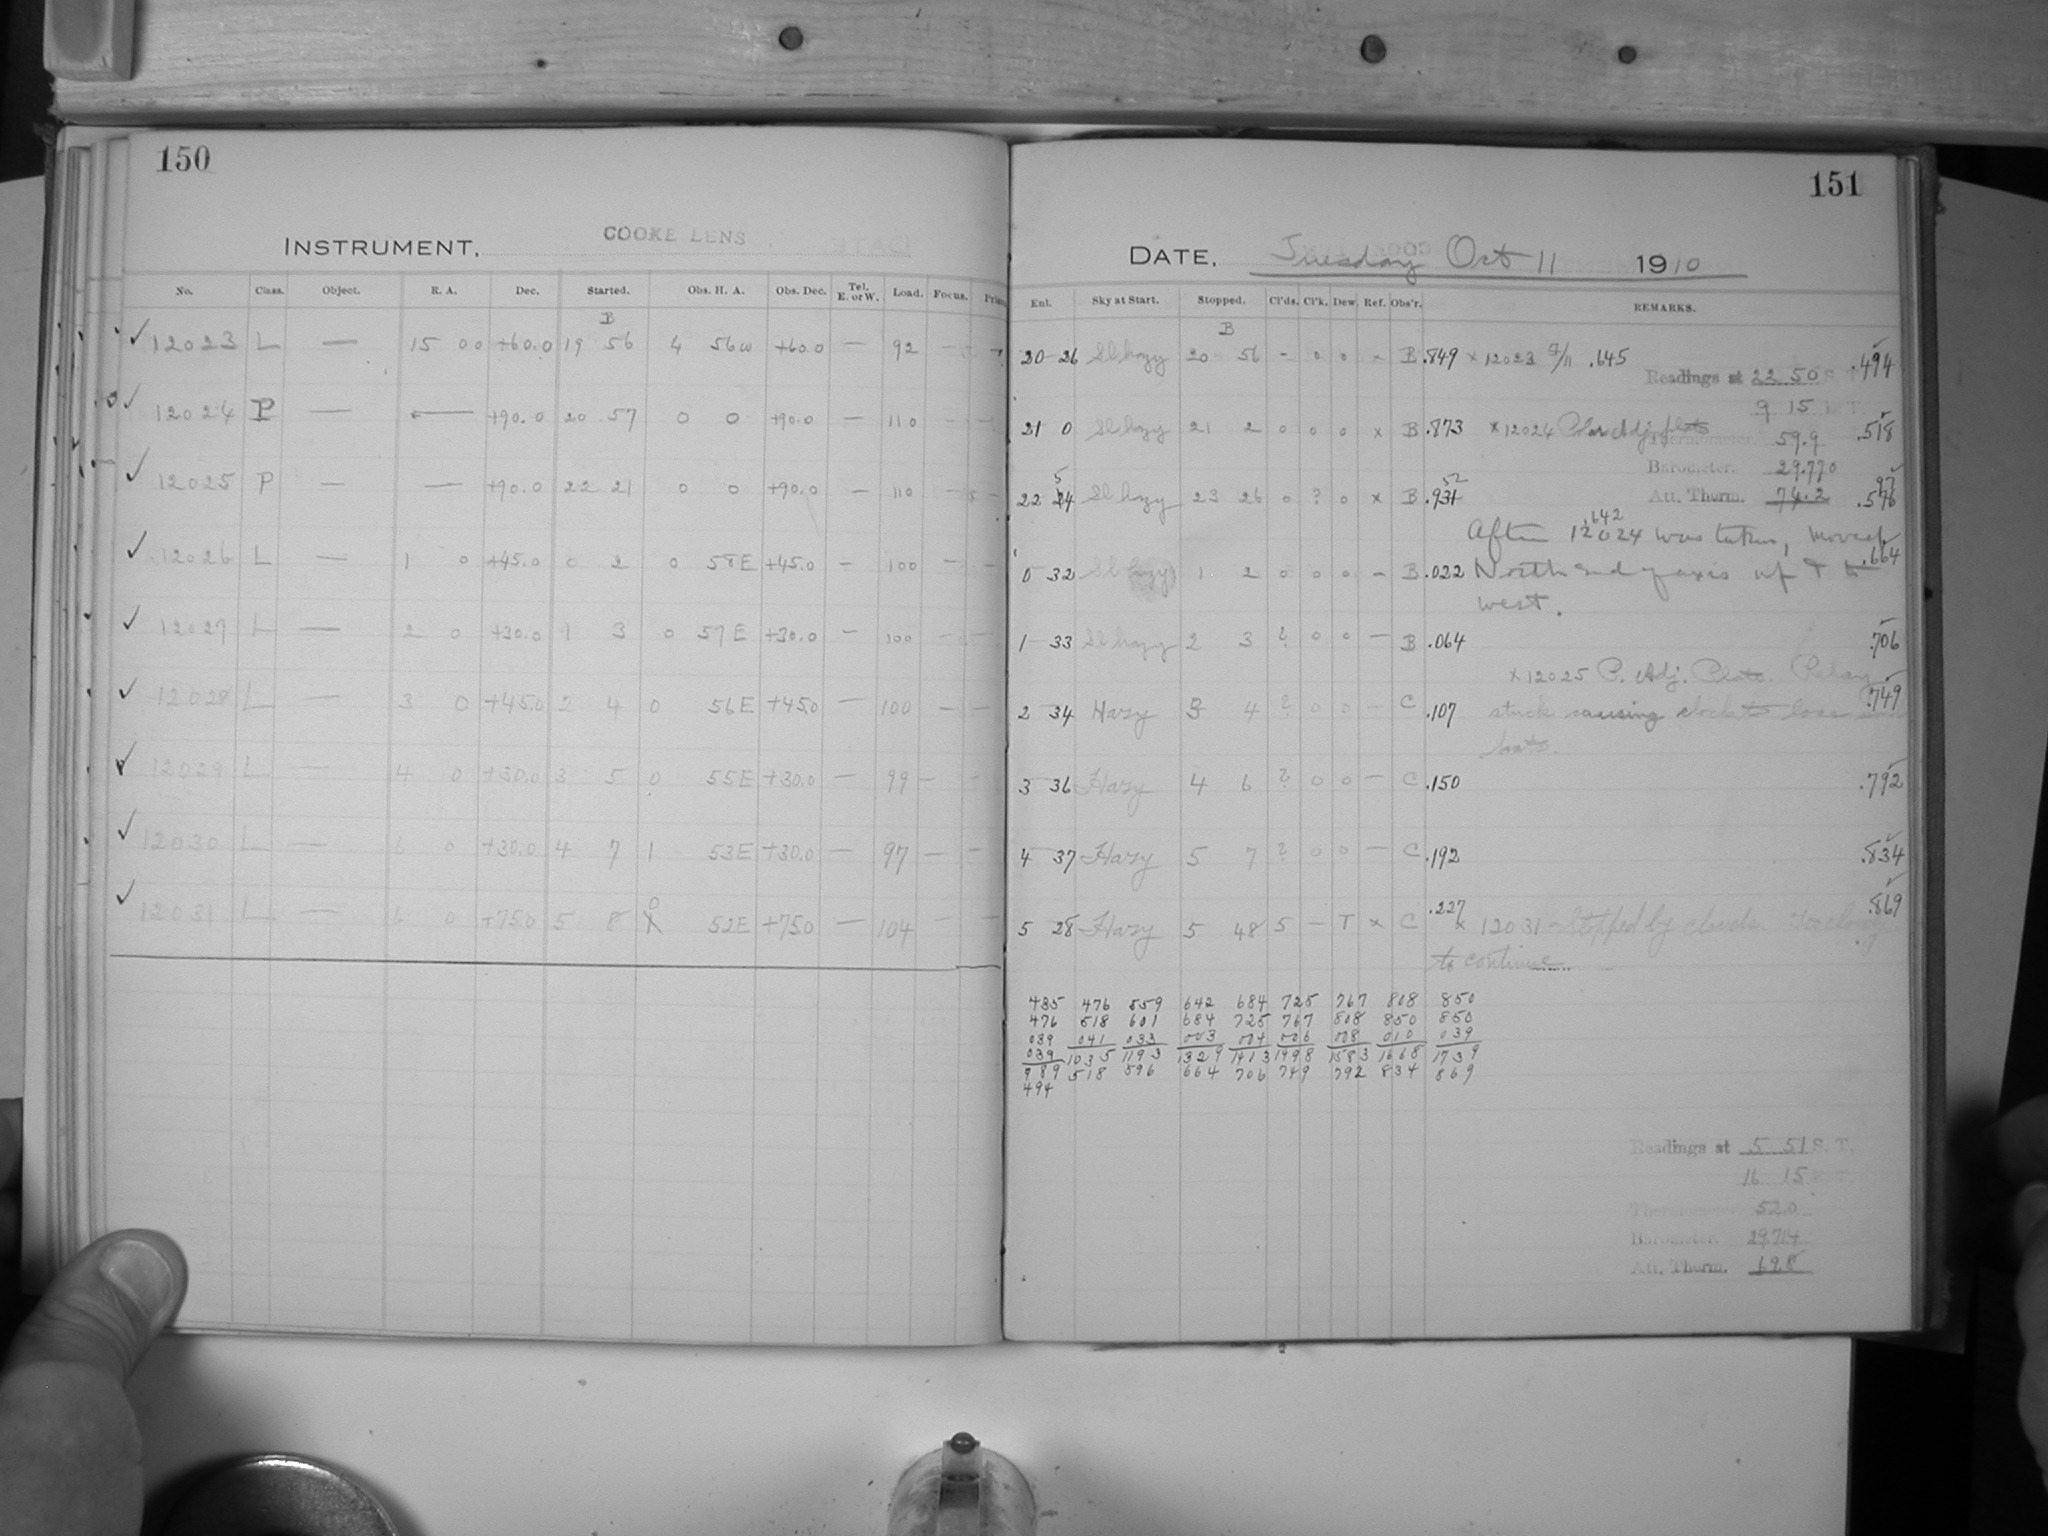 150
INSTRUMENT. COOKE LENS
No. Class. Object. R. A. Dec. Started. Obs. H. A. Obs. Dec. Tel. E. or W. Load. Focus.
B
12023 L — 15 00 +60.0 19 56 4 56w +60.0 — 92 -
12024 P — — +90.0 20 57 0 0 +90.0 — 110 -
12025 P — — +90.0 22 21 0 0 +90.0 — 110 -
12026 L — 1 0 +45.0 0 2 0 58E +45.0 — 100 -
12027 L — 2 0 +30.0 1 3 0 57E +30.0 — 100 -
12028 L — 3 0 +45.0 2 4 0 56E +45.0 — 100 - -
12029 L — 4 0 +30.0 3 5 0 55E +30.0 — 99 -
12030 L — 6 0 +30.0 4 7 1 53E +30.0 — 97 - -
0
12031 L — 6 0 +75.0 5 8 52E +75.0 — 104 - -
151
DATE. Tuesday Oct 11 1910
Enl. Sky at Start. Stopped. Cl'ds. Cl'k. Dew. Ref. Obs'r. REMARKS.
B
20 26 Sl hazy 20 56 - 0 0 x B .849 x 12023 .645 .494
Readings at 22 50 S. T.
9 15
21 0 Sl hazy 21 2 0 0 0 x B .873 x 12024 Polar Adj. plate .518
Thermometer. 59.9
Barometer. 29.770
22 24 Sl hazy 23 26 0 ? 0 x B .931 Att. Therm. 74.2
.642
After 12024 was taken, moved
0 32 Sl hazy 1 2 0 0 0 - B .022 North end of axis up + to .664
west.
1 33 Sl hazy 2 3 ? 0 0 - B .064 .706
x 12025 P. Adj. Plate. Relay
2 34 Hazy 3 4 ? 0 0 - C .107 stuck causing clock to lose .749
beats.
3 36 Hazy 4 6 ? 0 0 - C .150 .792
4 37 Hazy 5 7 ? 0 0 - C .192 .834
5 28 Hazy 5 48 5 - T x C .227 x 12031 - Stopped by clouds. Too cloudy .869
to continue
435 476 559 642 684 725 767 808 850
476 518 601 684 725 767 808 850 850
039 041 033 003 004 006 008 010 039
039 1035 1193 1329 1413 1498 1583 1668 1739
989 518 596 664 706 749 792 834 869
494
Readings at 5 51 S. T.
16 15
Thermometer 52.0
Barometer. 29.714
Att. Therm. 69.8